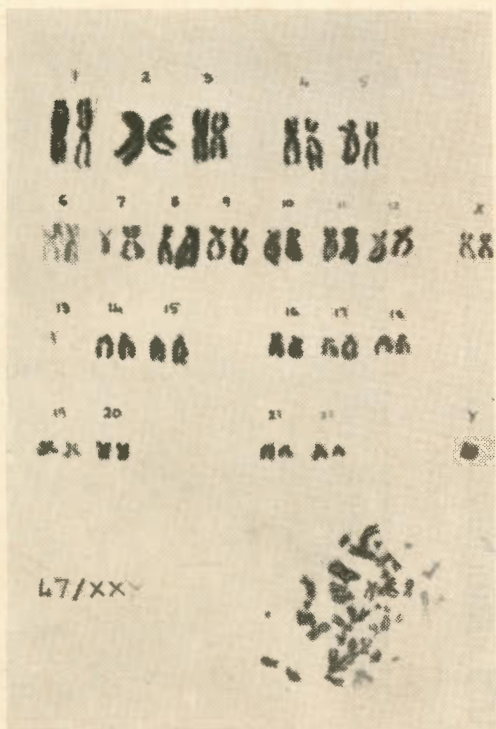 1 2 3 4 5
6 7 8 9 10 11 12 X
13 14 15 16 17 18
19 20 21 22 Y
47/XXY